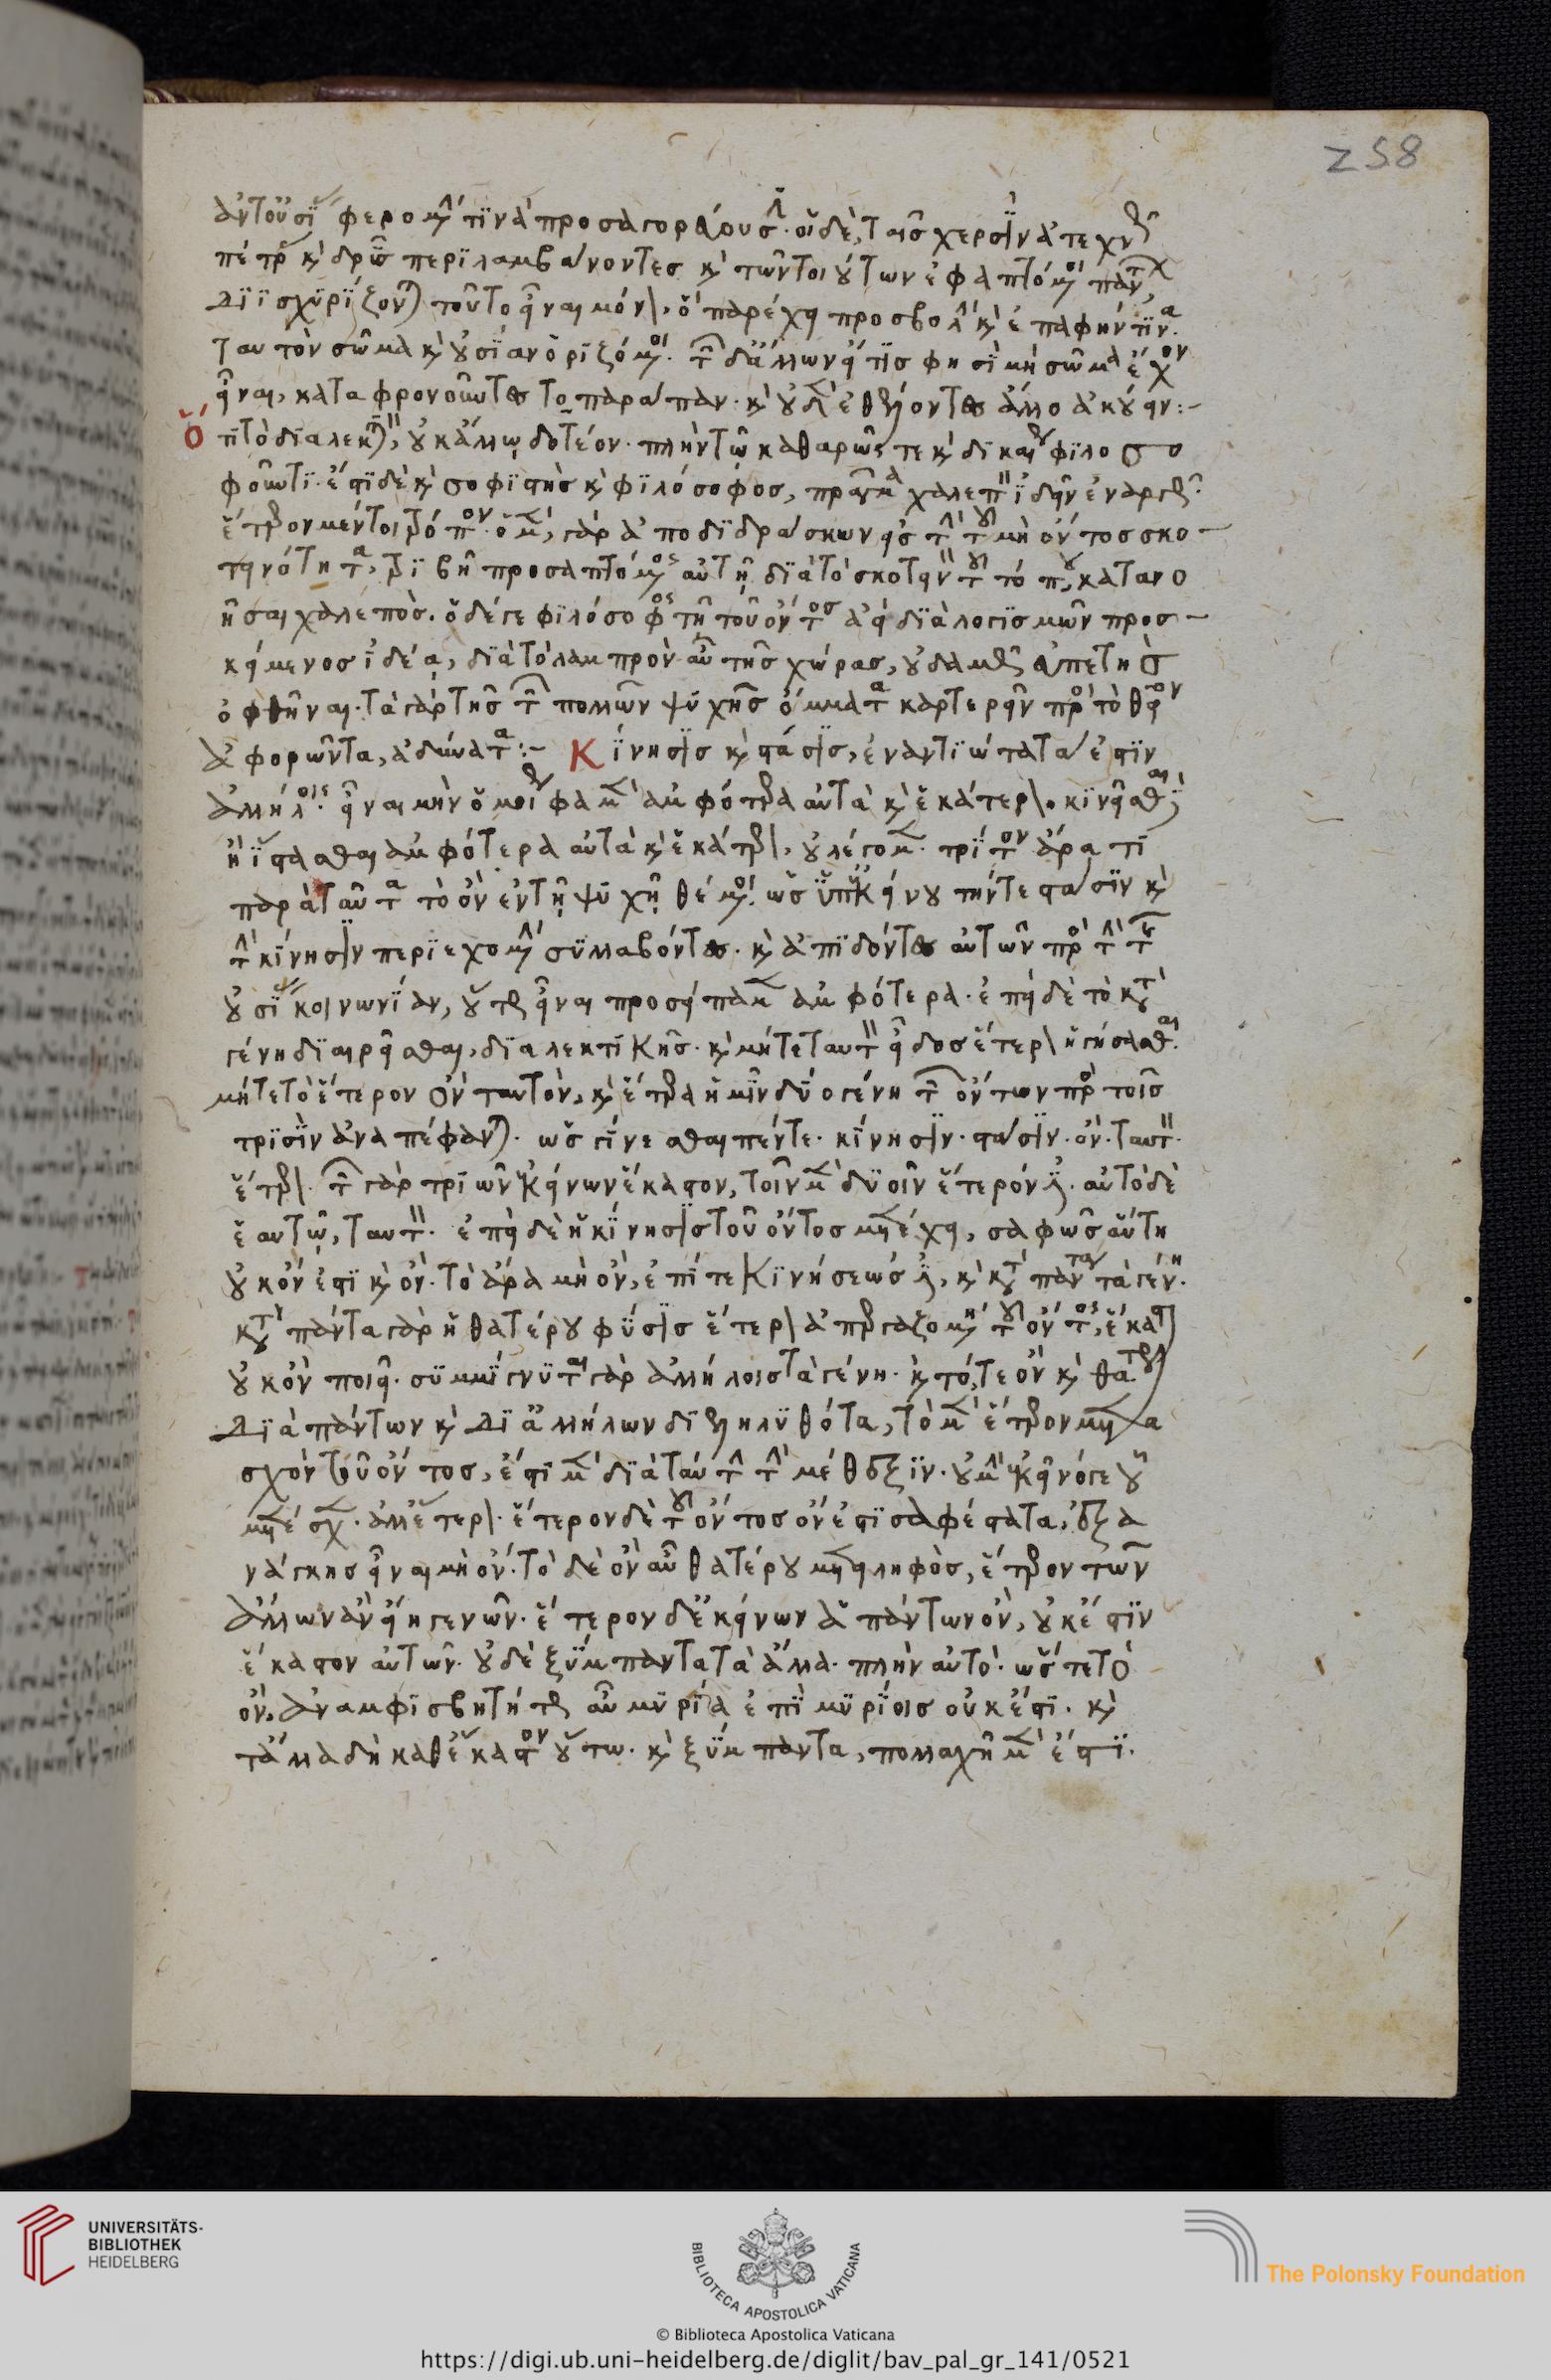 ἀντ' οὐσίας φερομένην τινὰ προσαγορεύουσιν. οἱ δὲ, ταῖς χερσὶν ἀτεχνῶς
πέτρας καὶ δρῦς περιλαμβάνοντες καὶ τῶν τοιούτων ἐφαπτόμενοι πάντων
διϊσχυρίζονται τοῦτο εἶναι μόνον, ὃ παρέχει προσβολὴν καὶ ἐπαφήν τινα.
ταυτὸν σῶμα καὶ οὐσίαν ὁριζόμενοι. τῶν δ' ἄλλων εἴ τίς φησὶ μὴ σῶμα ἔχον
εἶναι, καταφρονοῦντες τοπαράπαν. καὶ οὐδὲν ἐθέλοντες ἄλλο ἀκούειν:-
ὅτι τὸ διαλεκτικὸν, οὐκ ἄλλῳ δοτέον. πλὴν τῷ καθαρῶς τε καὶ δικαίως φιλοσο
φοῦντι. ἔστι δὲ καὶ σοφιστὴς καὶ φιλόσοφος, πρᾶγμα χαλεπὸν ἰδεῖν ἐναργῶς.
ἕτερον μέντοι τρόπον. ὁ μὲν, γὰρ ἀποδιδράσκων εἰς τὴν τοῦ μὴ ὄντος σκο-
τεινότητα, τριβῇ προσαπτόμενος αὐτῇ διὰ τὸ σκοτεινὸν τοῦ τόπου, κατανο
ῆσαι χαλεπὸς. ὁ δέ γε φιλόσοφος τῇ τοῦ ὄντος ἀεὶ διὰ λογισμῶν προσ-
κείμενος ἰδέᾳ, διὰ τὸ λαμπρὸν αὖ τῆς χώρας, οὐδαμῶς εὐπετὴς
ὀφθῆναι. τὰ γὰρ τῆς τῶν πολλῶν ψυχῆς ὄμματα καρτερεῖν πρὸς τὸ θεῖον
ἀφορῶντα, ἀδύνατα:- Κίνησις καὶ στάσις, ἐναντιώτατα ἐστὶν
ἀλλήλοις. εἶναι μὴν ὁμοίως φαμὲν ἀμφότερα αὐτὰ καὶ ἑκάτερον. κινεῖσθαι
ἢ ἵστασθαι ἀμφότερα αὐτὰ καὶ ἑκάτερον, οὐ λέγομεν. τρίτον ἄρα τί
παρὰ ταῦτα τὸ ὂν ἐν τῇ ψυχῇ θέμενοι. ὡς ὑπ' ἐκείνου τήν τε στάσιν καὶ
τὴν κίνησιν περιεχομένην συλλαβόντες. καὶ ἀπιδόντες αὐτῶν πρὸς τὴν τῆς
οὐσίας κοινωνίαν, οὕτως εἶναι προσείπαμεν ἀμφότερα. ἐπεὶ δὲ τὸ κατὰ
γένη διαιρεῖσθαι, διαλεκτικῆς. καὶ μήτε ταυτὸν εἶδος ἕτερον ἡγήσασθαι.
μήτε τὸ ἕτερον ὂν ταυτὸν, καὶ ἕτερα ἡμῖν δύο γένη τῶν ὄντων πρὸς τοῖς
τρισὶν ἀναπέφανται. ὡς γίνεσθαι πέντε. κίνησιν. στάσιν. ὄν. ταυτόν.
ἕτερον. τῶν γὰρ τριῶν ἐκείνων ἕκαστον, τοῖν μὲν δυοῖν ἕτερόν ἐστιν. αὐτὸ δὲ
ἑαυτῷ, ταυτόν. ἐπεὶ δὲ ἡ κίνησις τοῦ ὄντος μετέχει, σαφῶς αὕτη
οὐκ ὄν ἐστι καὶ ὄν. τὸ ἄρα μὴ ὂν, ἐπί τε κινήσεώς ἐστι, καὶ κατὰ πάντα τὰ γένη.
κατὰ πάντα γὰρ ἡ θατέρου φύσις ἕτερον ἀπεργαζομένη τοῦ ὄντος, ἕκαστον
οὐκ ὂν ποιεῖ. συμμίγνυται γὰρ ἀλλήλοις τὰ γένη. καὶ τό, τε ὂν καὶ θάτερον
διὰ πάντων καὶ δι' ἀλλήλων διεληλυθότα, τὸ μὲν ἕτερον μετα
σχὸν τοῦ ὄντος, ἔστι μὲν διὰ ταύτην τὴν μέθεξιν. οὐ μὴν ἐκεῖνό γε οὗ
μετέσχεν. ἀλλ' ἕτερον. ἕτερον δὲ τοῦ ὄντος ὂν ἐστὶ σαφέστατα, ἐξ ἀ
νάγκης εἶναι μὴ ὄν. τὸ δὲ ὂν αὖ θατέρου μετειληφὸς, ἕτερον τῶν
ἄλλων ἂν εἴη γενῶν. ἕτερον δ' ἐκείνων ἁπάντων ὂν, οὐκ ἔστιν
ἕκαστον αὐτῶν. οὐδὲ ξύμπαντα τὰ ἄλλα. πλὴν αὐτό. ὥστε τὸ
ὂν, ἀναμφισβητήτως αὖ μυρία ἐπὶ μυρίοις οὐκ ἔστι. καὶ
τἆλλα δὴ καθ' ἕκαστον οὕτω. καὶ ξύμπαντα, πολλαχῇ μὲν ἔστι.
258
UNIVERSITÄTS-
BIBLIOTHEK
HEIDELBERG
BIBLIOTECA APOSTOLICA VATICANA
The Polonsky Foundation
© Biblioteca Apostolica Vaticana
https://digi.ub.uni-heidelberg.de/diglit/bav_pal_gr_141/0521